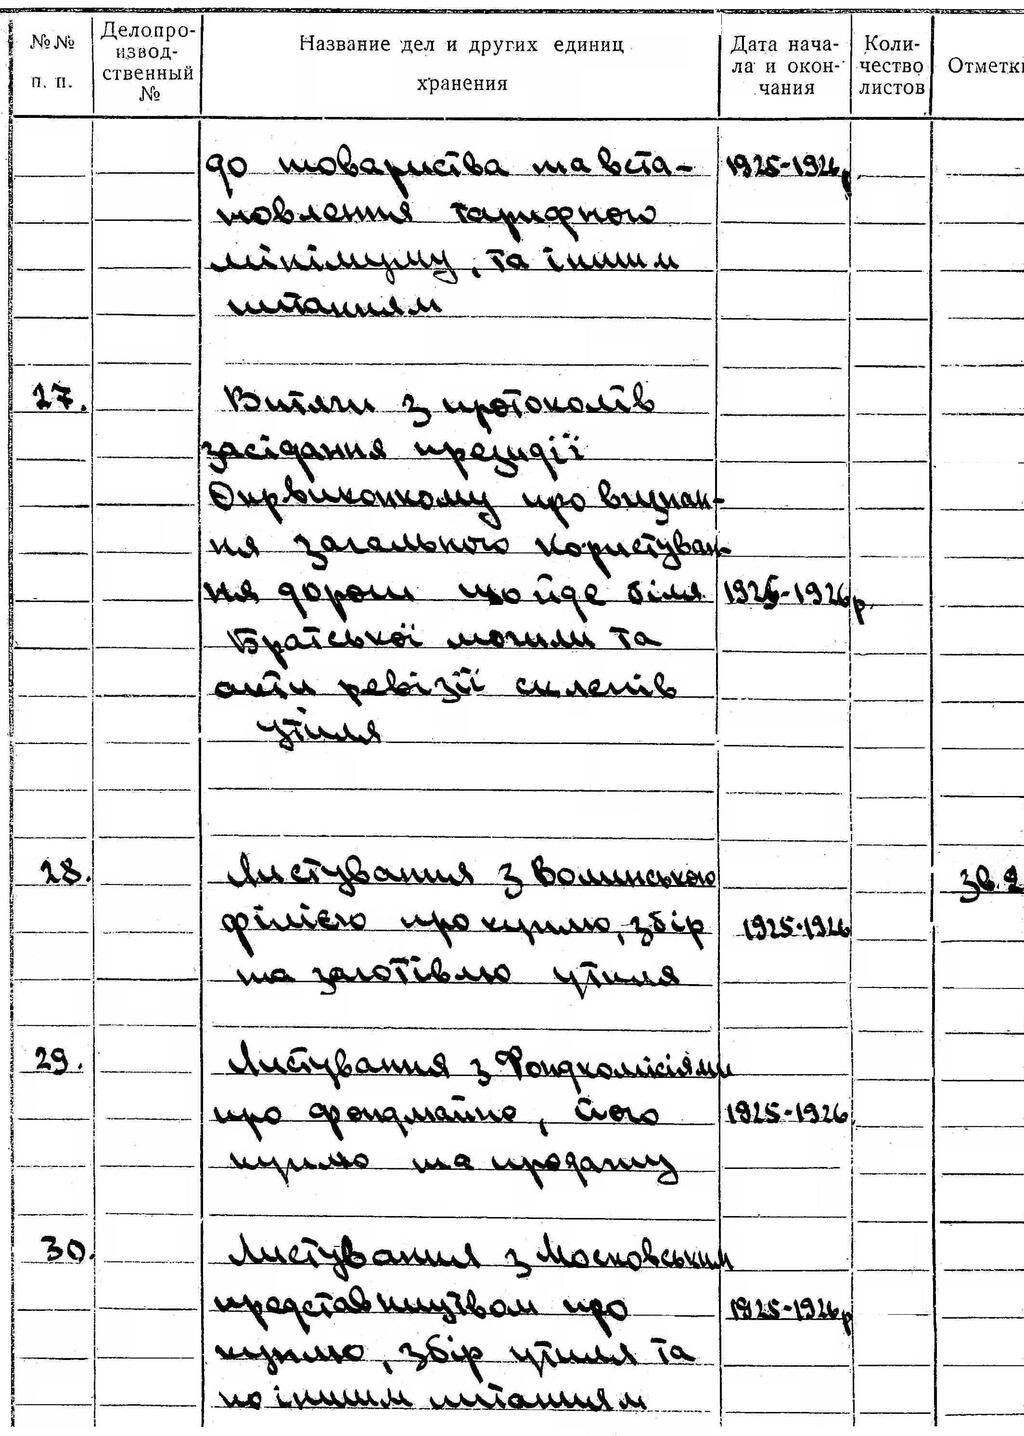 №№ п. п.
Делопро-
извод-
ственный
№
Название дел и других единиц
хранения
Дата нача-
ла и окон-
чания
Коли-
чество
листов
Отметки
до товариства та вста- 1925-1926р.
новлення тарифного
мінімуму, та іншим
питанням
27. Витяги з протоколів
засідання президії
Окрвиконкому про визнан-
ня загального користуван-
ня дороги що йде біля 1925-1926р.
Братської могили та
акти ревізії склепів
утиля
28. Листування з Волинською Зв. 2
філією про куплю, збір 1925-1926
та заготівлю утиля
29. Листування з Фондкомісіями
про фондмайно, його 1925-1926
куплю та продажу
30. Листування з Московським
представництвом про 1925-1926р
куплю, збір утиля та
по іншим питанням